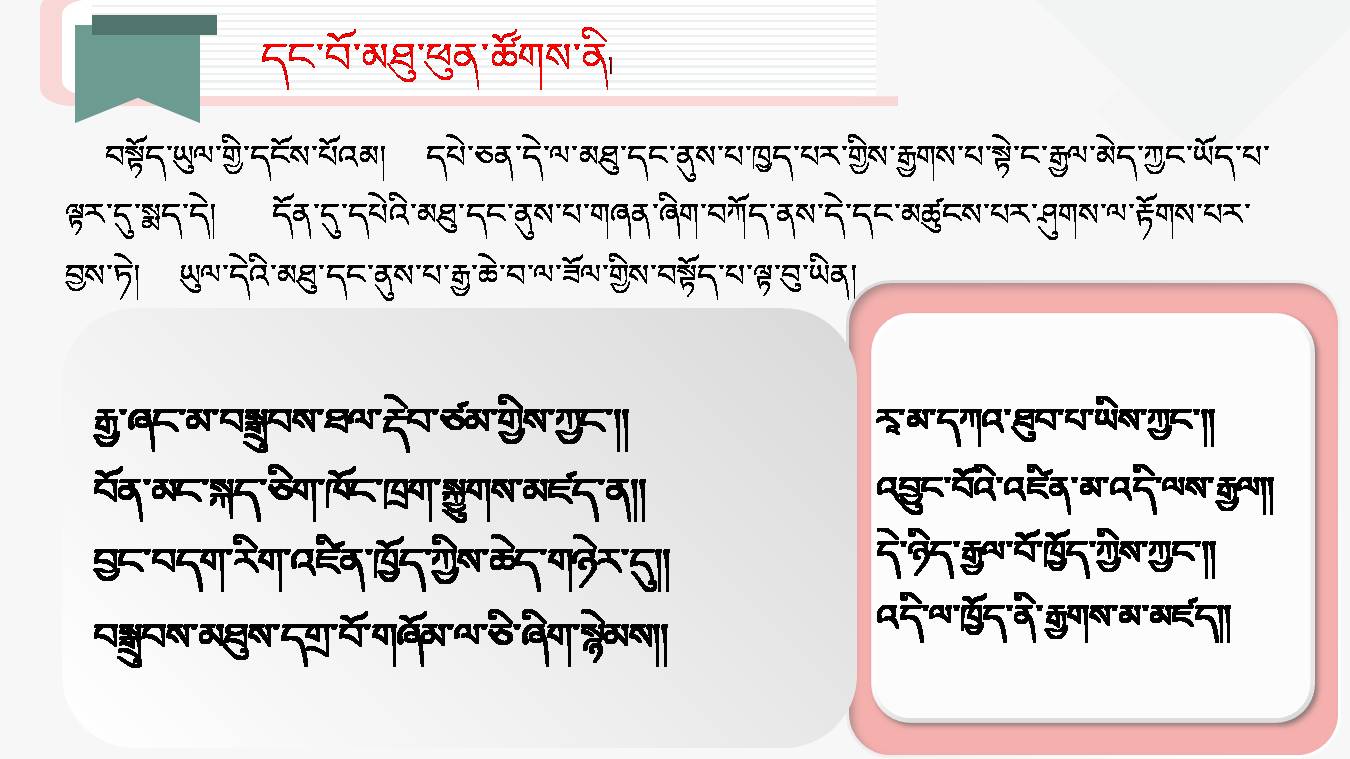 དང་བོ་མཐུ་ཕུན་ཚོགས་ནི།
བསྟོད་ཡུལ་གྱི་དངོས་པོའམ། དཔེ་ཅན་དེ་ལ་མཐུ་དང་ནུས་པ་ཁྱད་པར་གྱིས་རྒྱགས་པ་སྟེ་ང་རྒྱལ་མེད་ཀྱང་ཡོད་པ་
ལྟར་དུ་སྨད་དེ། དོན་དུ་དཔེའི་མཐུ་དང་ནུས་པ་གཞན་ཞིག་བཀོད་ནས་དེ་དང་མཚུངས་པར་ཤུགས་ལ་རྟོགས་པར་
བྱས་ཏེ། ཡུལ་དེའི་མཐུ་དང་ནུས་པ་རྒྱ་ཆེ་བ་ལ་ཟོལ་གྱིས་བསྟོད་པ་ལྟ་བུ་ཡིན།
རྒྱ་ཞང་མ་བསྒྲུབས་ཐལ་རྡེབ་ཙམ་གྱིས་ཀྱང་།།
བོན་མང་སྐད་ཅིག་ཁོང་ཁྲག་སྐྱུགས་མཛད་ན།།
བྱང་བདག་རིག་འཛིན་ཁྱོད་ཀྱིས་ཆེད་གཉེར་དུ།།
བསྒྲུབས་མཐུས་དགྲ་བོ་གཞོམ་ལ་ཅི་ཞིག་སྙེམས།།
རཱ་མ་དཀའ་ཐུབ་པ་ཡིས་ཀྱང་།།
འབྱུང་བོའི་འཛིན་མ་འདི་ལས་རྒྱལ།།
དེ་ཉིད་རྒྱལ་བོ་ཁྱོད་ཀྱིས་ཀྱང་།།
འདི་ལ་ཁྱོད་ནི་རྒྱགས་མ་མཛད།།